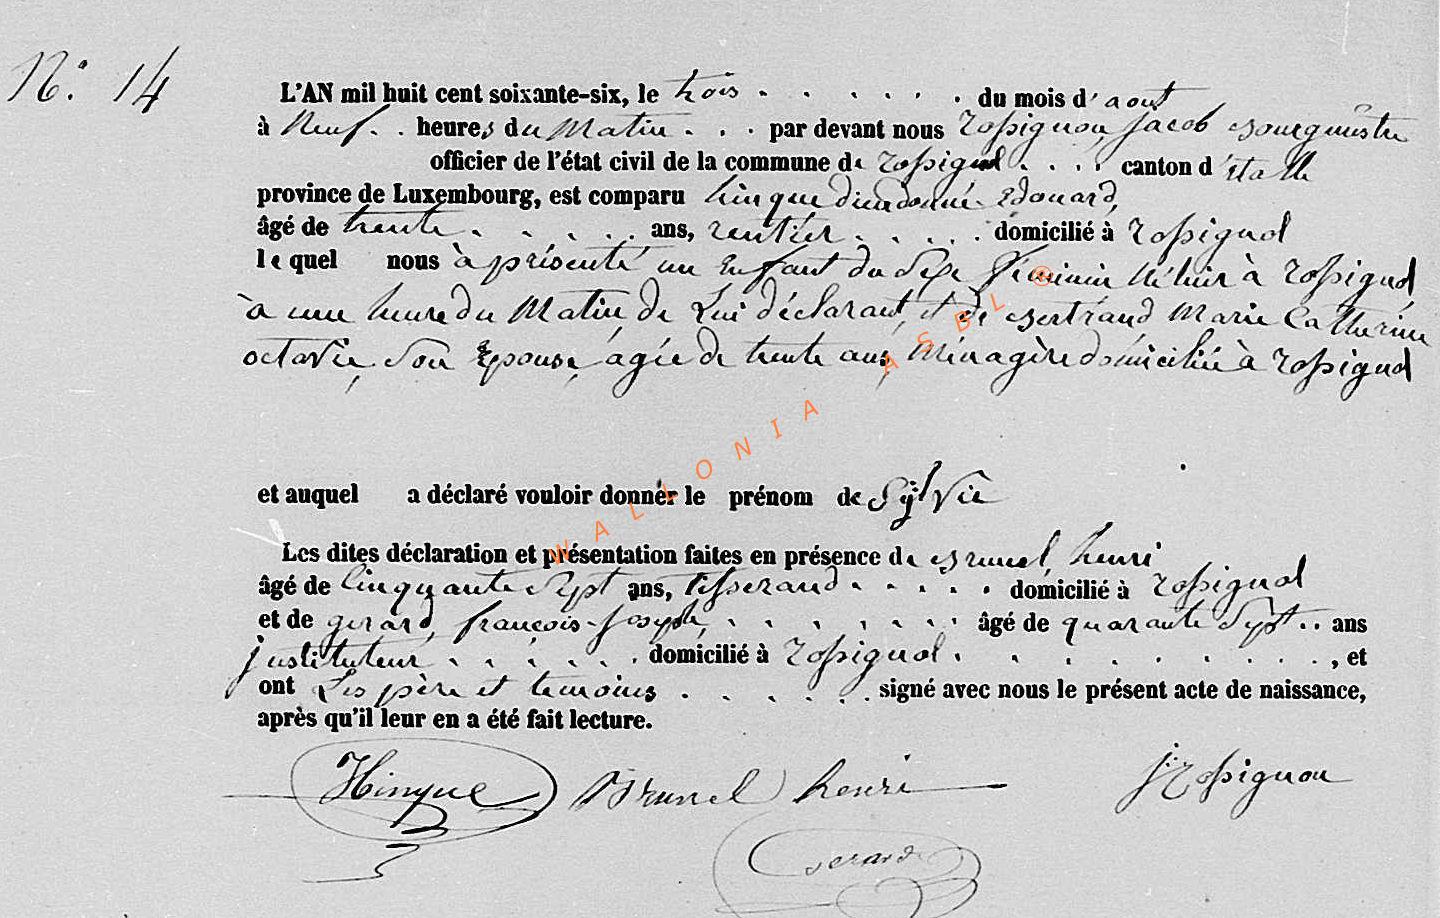 N.° 14
L'AN mil huit cent soixante-six, le trois . . . . . . du mois d'aout
à Neuf . . heures du Matin . . . par devant nous rossignon, Jacob Bourgmestre
officier de l'état civil de la commune de rossignol . . . . canton d'étalle
province de Luxembourg, est comparu hinque dieudonné Edouard,
âgé de trente . . . . . . ans, rentier . . . . . domicilié à rossignol
lequel nous à présenté un Enfant du Sexe féminin Né hier à rossignol
à une heure du Matin, de Lui déclarant, et de Bertrand Marie Catherine
octavie, Son Epouse, agée de trente ans, Ménagère domiciliée à rossignol
et auquel a déclaré vouloir donner le prénom de Sylvie
Les dites déclaration et présentation faites en présence de Brunel, henri
âgé de Cinquante Sept ans, tisserand . . . . . domicilié à rossignol
et de gerard, françois-Joseph, . . . . . . . . âgé de quarante Sept . . ans
justituteur . . . . . . domicilié à rossignol . . . . . . . . . , et
ont Les père et temoins . . . . . . signé avec nous le présent acte de naissance,
après qu'il leur en a été fait lecture.
Hinque Brunel henri J: rossignon
Gerard
WALLONIA ASBL ®